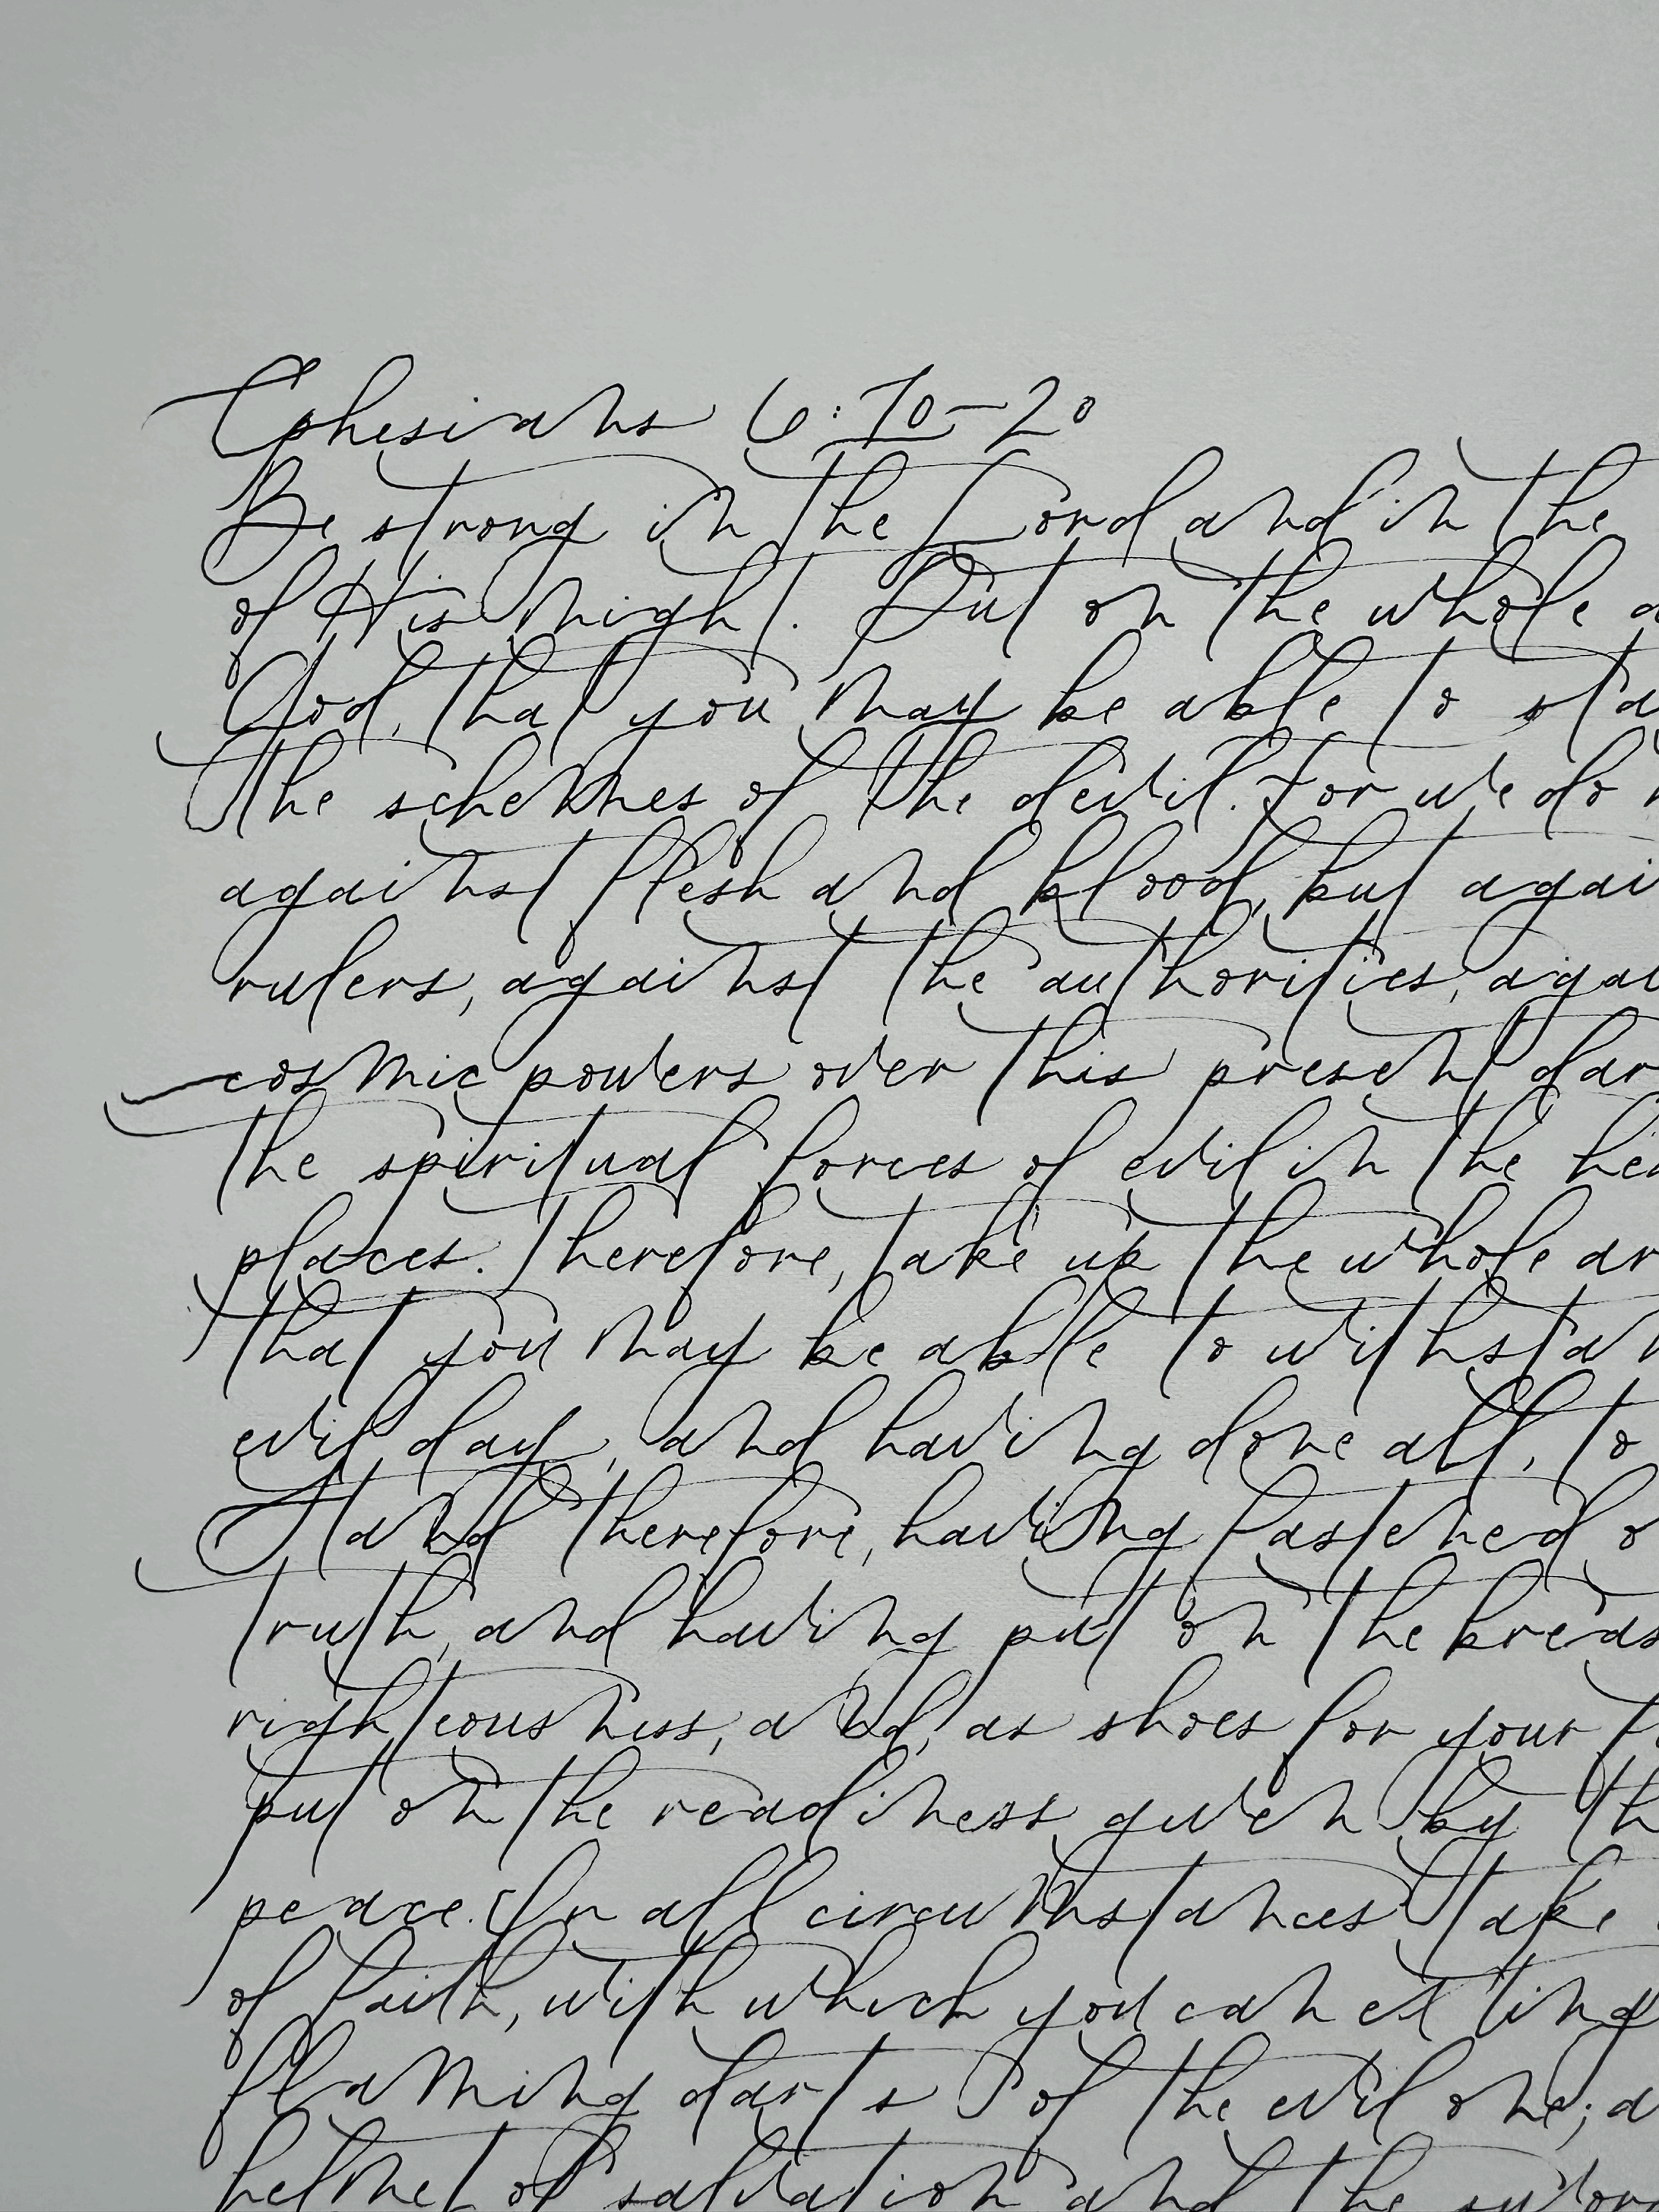 Ephesians 6:10-20
Be strong in the Lord and in the
of His might. Put on the whole a
God, that you may be able to sta
the schemes of the devil. For we do n
against flesh and blood, but agai
rulers, against the authorities, agai
cosmic powers over this present dar
the spiritual forces of evil in the hea
places. Therefore, take up the whole ar
that you may be able to withstan
evil day, and having done all, to
Stand therefore, having fastened o
truth, and having put on the breas
righteousness, and, as shoes for your f
put on the readiness given by th
peace. In all circumstances take
of faith, with which you can exting
flaming darts of the evil one; a
helmet of salvation and the swor